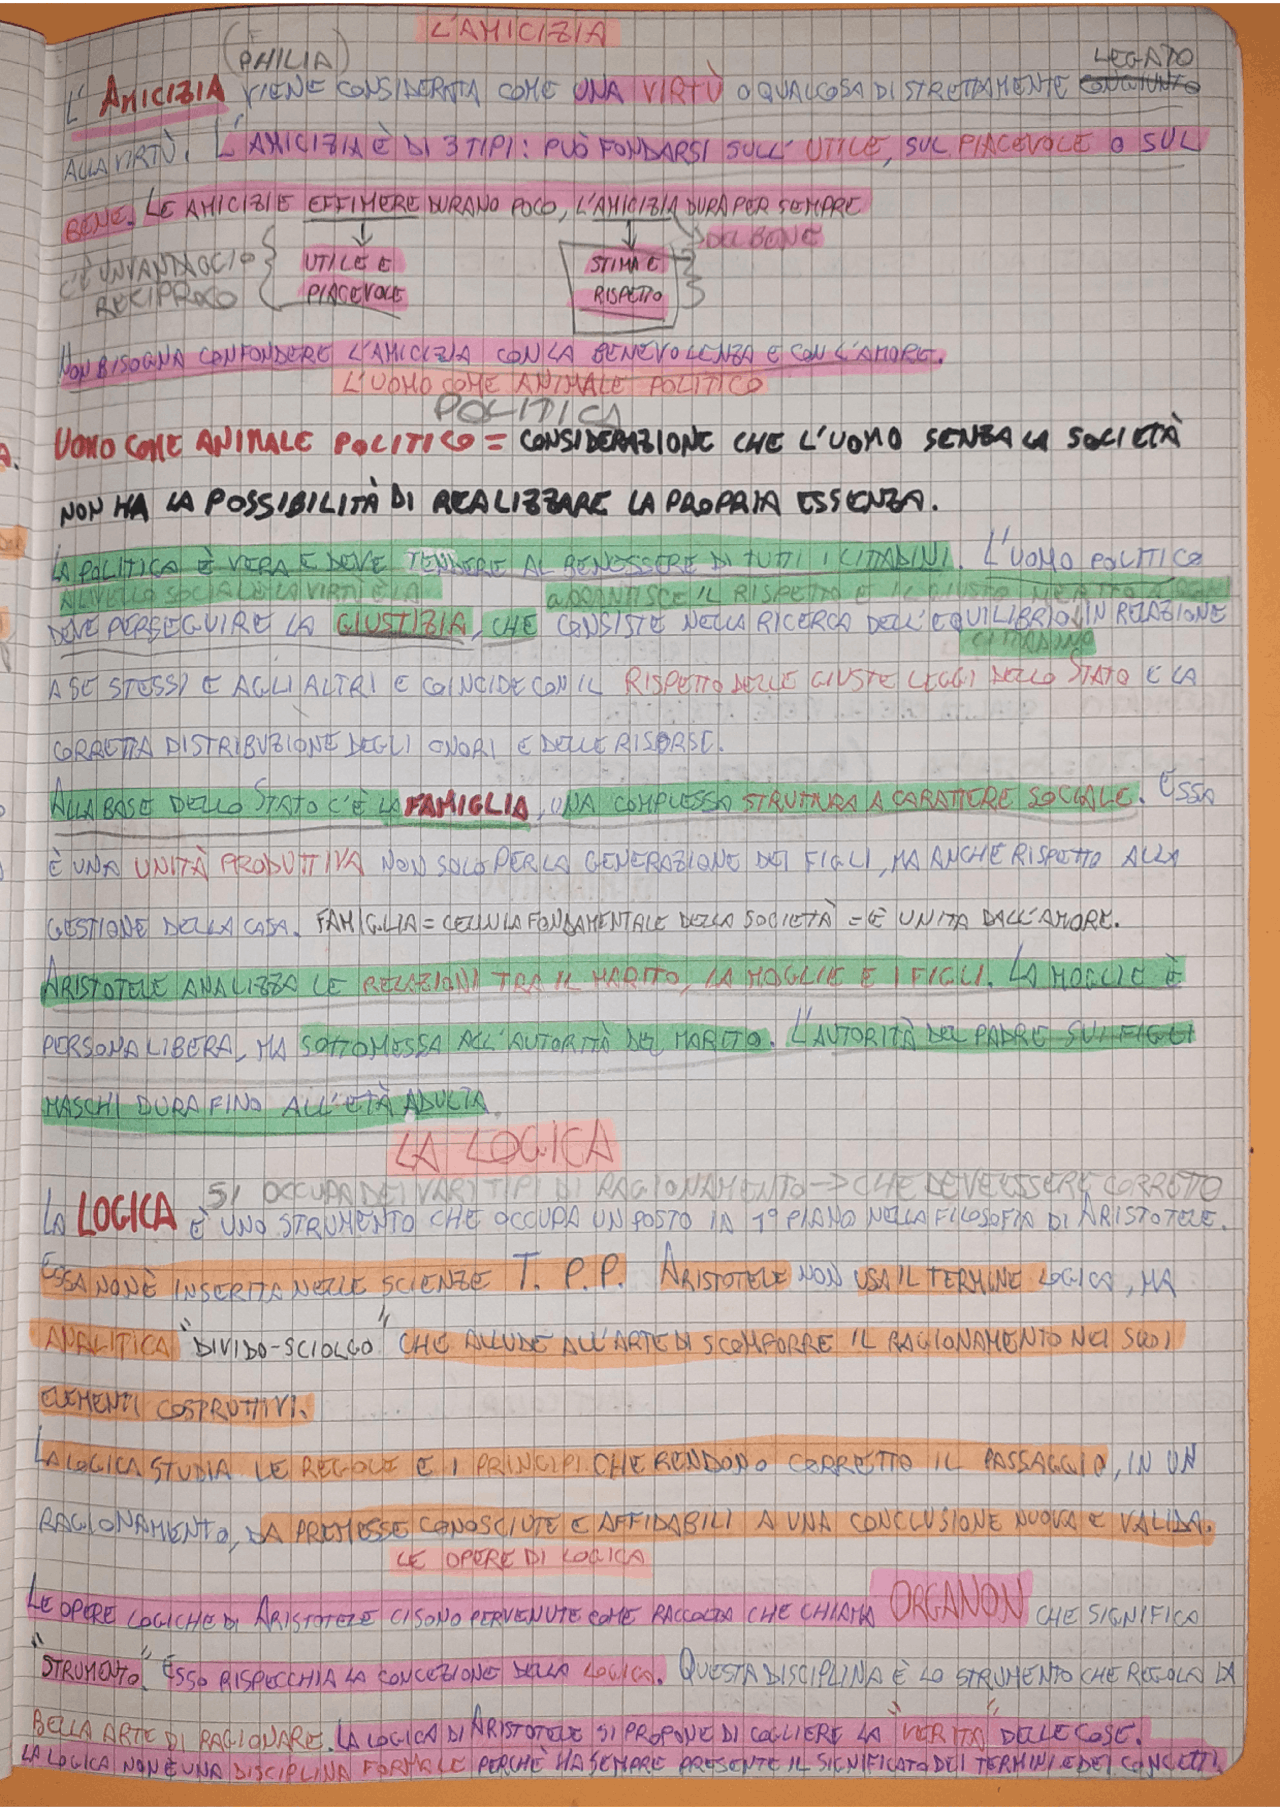 L'AMICIZIA
(PHILIA)
LEGATO
L'AMICIZIA VIENE CONSIDERATA COME UNA VIRTÙ O QUALCOSA DI STRETTAMENTE CONGIUNTO
ALLA VIRTÙ. L'AMICIZIA È DI 3 TIPI: PUÒ FONDARSI SULL'UTILE, SUL PIACEVOLE O SUL
BENE. LE AMICIZIE EFFIMERE DURANO POCO, L'AMICIZIA DURA PER SEMPRE
DEL BENE
C'È UN VANTAGGIO { UTILE E STIMA E
RECIPROCO PIACEVOLE RISPETTO
NON BISOGNA CONFONDERE L'AMICIZIA CON LA BENEVOLENZA E CON L'AMORE.
L'UOMO COME ANIMALE POLITICO
POLITICA
UOMO COME ANIMALE POLITICO = CONSIDERAZIONE CHE L'UOMO SENZA LA SOCIETÀ
NON HA LA POSSIBILITÀ DI REALIZZARE LA PROPRIA ESSENZA.
LA POLITICA È VERA E DEVE TENDERE AL BENESSERE DI TUTTI I CITTADINI. L'UOMO POLITICO
A LIVELLO SOCIALE LA VIRTÙ È LA GARANTISCE IL RISPETTO E IL GIUSTO MERITO A OGNI
DEVE PERSEGUIRE LA GIUSTIZIA, CHE CONSISTE NELLA RICERCA DELL'EQUILIBRIO IN RELAZIONE
CITTADINO
A SE STESSI E AGLI ALTRI E COINCIDE CON IL RISPETTO DELLE GIUSTE LEGGI DELLO STATO E LA
CORRETTA DISTRIBUZIONE DEGLI ONORI E DELLE RISORSE.
ALLA BASE DELLO STATO C'È LA FAMIGLIA, UNA COMPLESSA STRUTTURA A CARATTERE SOCIALE. ESSA
È UNA UNITÀ PRODUTTIVA NON SOLO PER LA GENERAZIONE DEI FIGLI, MA ANCHE RISPETTO ALLA
GESTIONE DELLA CASA. FAMIGLIA = CELLULA FONDAMENTALE DELLA SOCIETÀ = È UNITA DALL'AMORE.
ARISTOTELE ANALIZZA LE RELAZIONI TRA IL MARITO, LA MOGLIE E I FIGLI. LA MOGLIE È
PERSONA LIBERA, MA SOTTOMESSA ALL'AUTORITÀ DEL MARITO. L'AUTORITÀ DEL PADRE SUI FIGLI
MASCHI DURA FINO ALL'ETÀ ADULTA.
LA LOGICA
SI OCCUPA DEI VARI TIPI DI RAGIONAMENTO -> CHE DEVE ESSERE CORRETTO
LA LOGICA È UNO STRUMENTO CHE OCCUPA UN POSTO IN 1° PIANO NELLA FILOSOFIA DI ARISTOTELE.
ESSA NON È INSERITA NELLE SCIENZE T. P. P. ARISTOTELE NON USA IL TERMINE LOGICA, MA
ANALITICA "DIVIDO-SCIOLGO" CHE ALLUDE ALL'ARTE DI SCOMPORRE IL RAGIONAMENTO NEI SUOI
ELEMENTI COSTRUTTIVI.
LA LOGICA STUDIA LE REGOLE E I PRINCIPI CHE RENDONO CORRETTO IL PASSAGGIO, IN UN
RAGIONAMENTO, DA PREMESSE CONOSCIUTE E AFFIDABILI A UNA CONCLUSIONE NUOVA E VALIDA.
LE OPERE DI LOGICA
LE OPERE LOGICHE DI ARISTOTELE CI SONO PERVENUTE COME RACCOLTA CHE CHIAMA ORGANON CHE SIGNIFICA
"STRUMENTO". ESSO RISPECCHIA LA CONCEZIONE DELLA LOGICA. QUESTA DISCIPLINA È LO STRUMENTO CHE REGOLA LA
BELLA ARTE DI RAGIONARE. LA LOGICA DI ARISTOTELE SI PROPONE DI COGLIERE LA "VERITÀ" DELLE COSE.
LA LOGICA NON È UNA DISCIPLINA FORMALE PERCHÈ HA SEMPRE PRESENTE IL SIGNIFICATO DEI TERMINI E DEI CONCETTI.